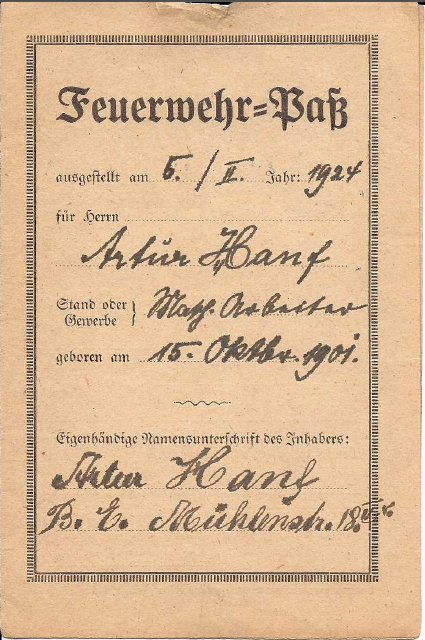 Feuerwehr=Paß
ausgestellt am 5. / II. Jahr: 1924
für Herrn
Artur Hanf
Stand oder } Masch. Arbeiter
Gewerbe
geboren am 15. Oktbr. 1901.
Eigenhändige Namensunterschrift des Inhabers:
Artur Hanf
B. E. Mühlenstr. 18.